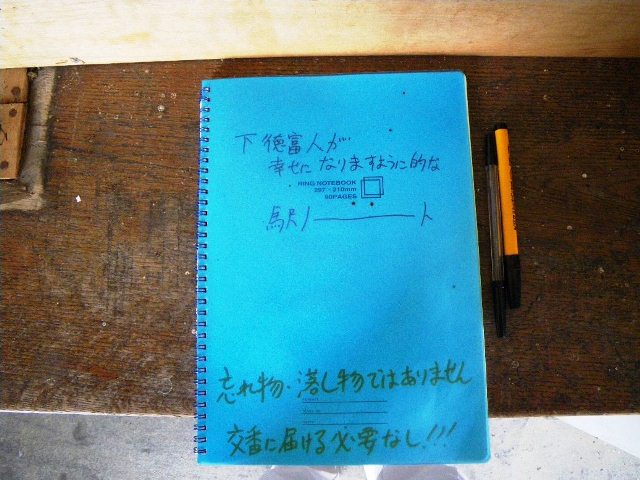 下徳富人が
幸せになりますように的な
RING NOTEBOOK
297×210mm
90PAGES
駅ノ――――ト
忘れ物・落し物ではありません
交番に届ける必要なし!!!